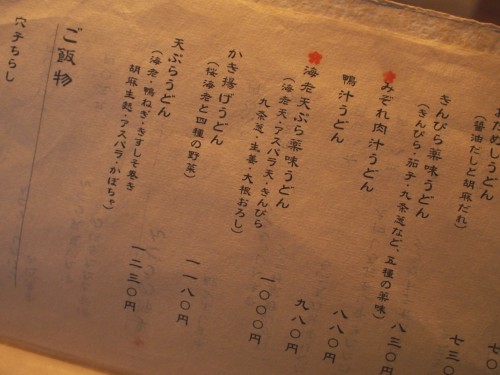 おためしうどん
(醤油だしと胡麻だれ)
七三
きんぴら薬味うどん
(きんぴら・茄子・九条芝など、五種の薬味)
八三〇円
みぞれ肉汁うどん
八八〇円
鴨汁うどん
九八〇円
海老天ぷら薬味うどん
(海老天・アスパラ天・きんぴら
九条芝・生姜・大根おろし)
一〇〇〇円
かき揚げうどん
(桜海老と四種の野菜)
一一八〇円
天ぷらうどん
(海老・鴨ねぎ・きすしそ巻き
胡麻生麩・アスパラ・かぼちゃ)
一二三〇円
ご飯物
穴子ちらし